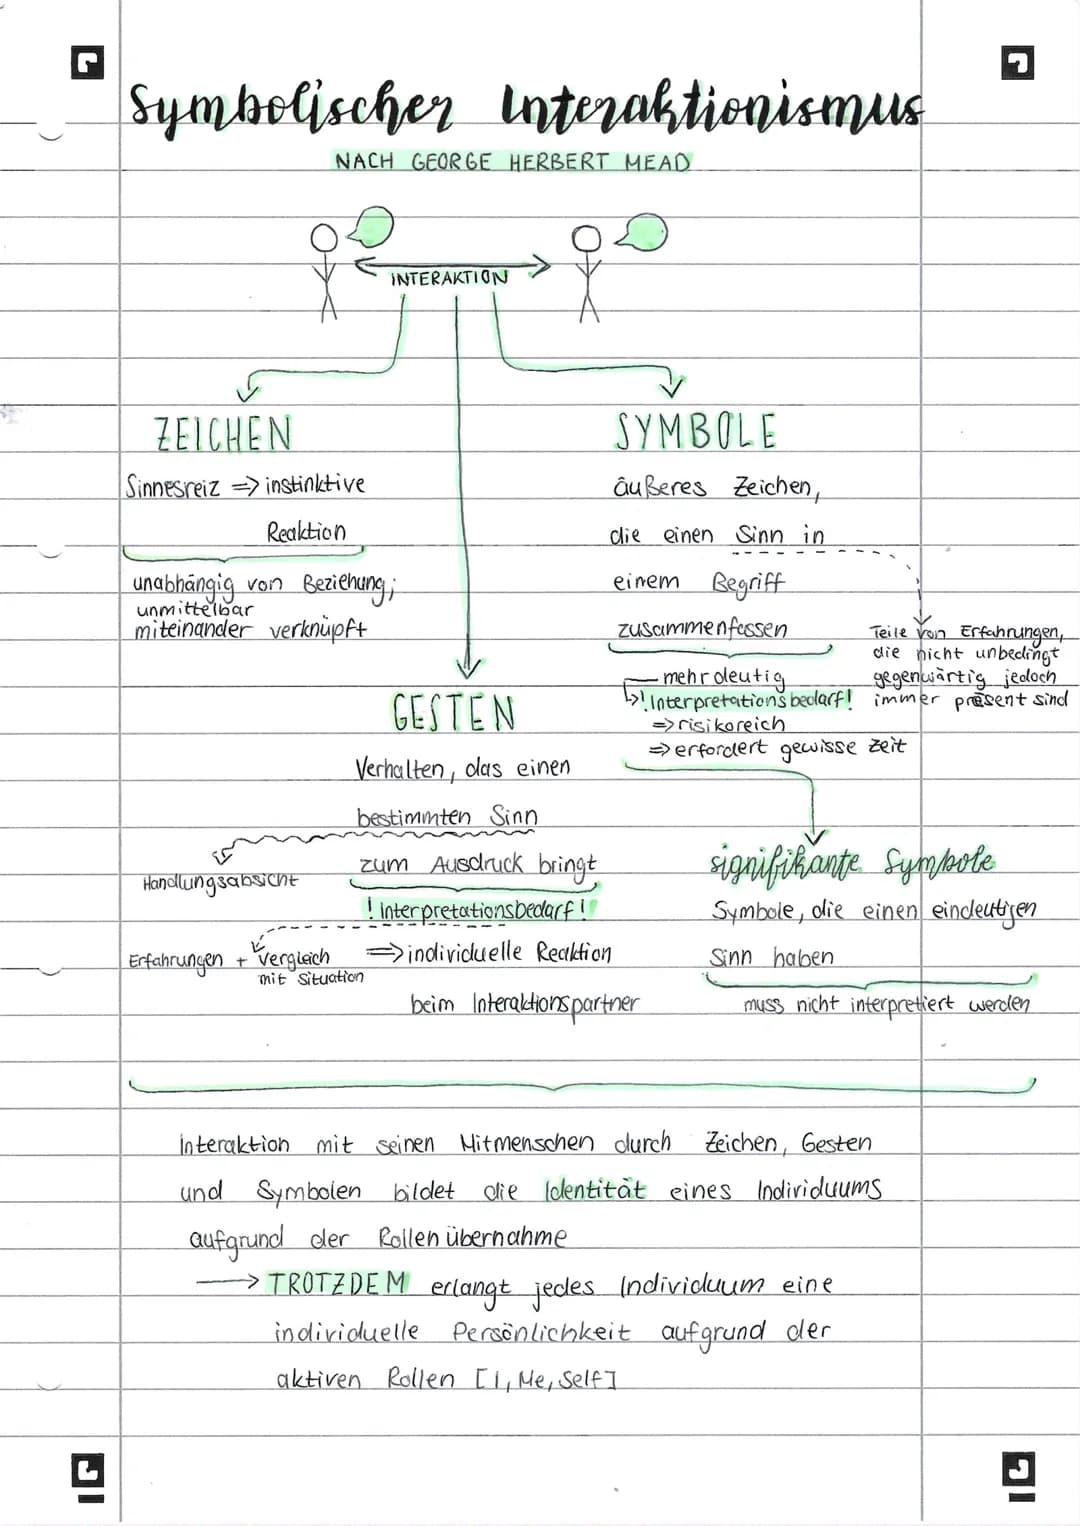 Symbolischer Interaktionismus
NACH GEORGE HERBERT MEAD
INTERAKTION
ZEICHEN
Sinnesreiz => instinktive
Reaktion
unabhängig von Beziehung;
unmittelbar
miteinander verknüpft
SYMBOLE
äußeres Zeichen,
die einen Sinn in
einem Begriff
zusammenfassen
Teile von Erfahrungen,
die nicht unbedingt
gegenwärtig jedoch
immer präsent sind
mehrdeutig
! Interpretationsbedarf!
=> risikoreich
=> erfordert gewisse Zeit
GESTEN
Verhalten, das einen
bestimmten Sinn
zum Ausdruck bringt
Handlungsabsicht
! Interpretationsbedarf!
Erfahrungen + Vergleich
mit Situation
=> individuelle Reaktion
beim Interaktionspartner
signifikante Symbole
Symbole, die einen eindeutigen
Sinn haben
muss nicht interpretiert werden
Interaktion mit seinen Mitmenschen durch Zeichen, Gesten
und Symbolen bildet die Identität eines Individuums
aufgrund der Rollenübernahme
→ TROTZDEM erlangt jedes Individuum eine
individuelle Persönlichkeit aufgrund der
aktiven Rollen [I, Me, Self]